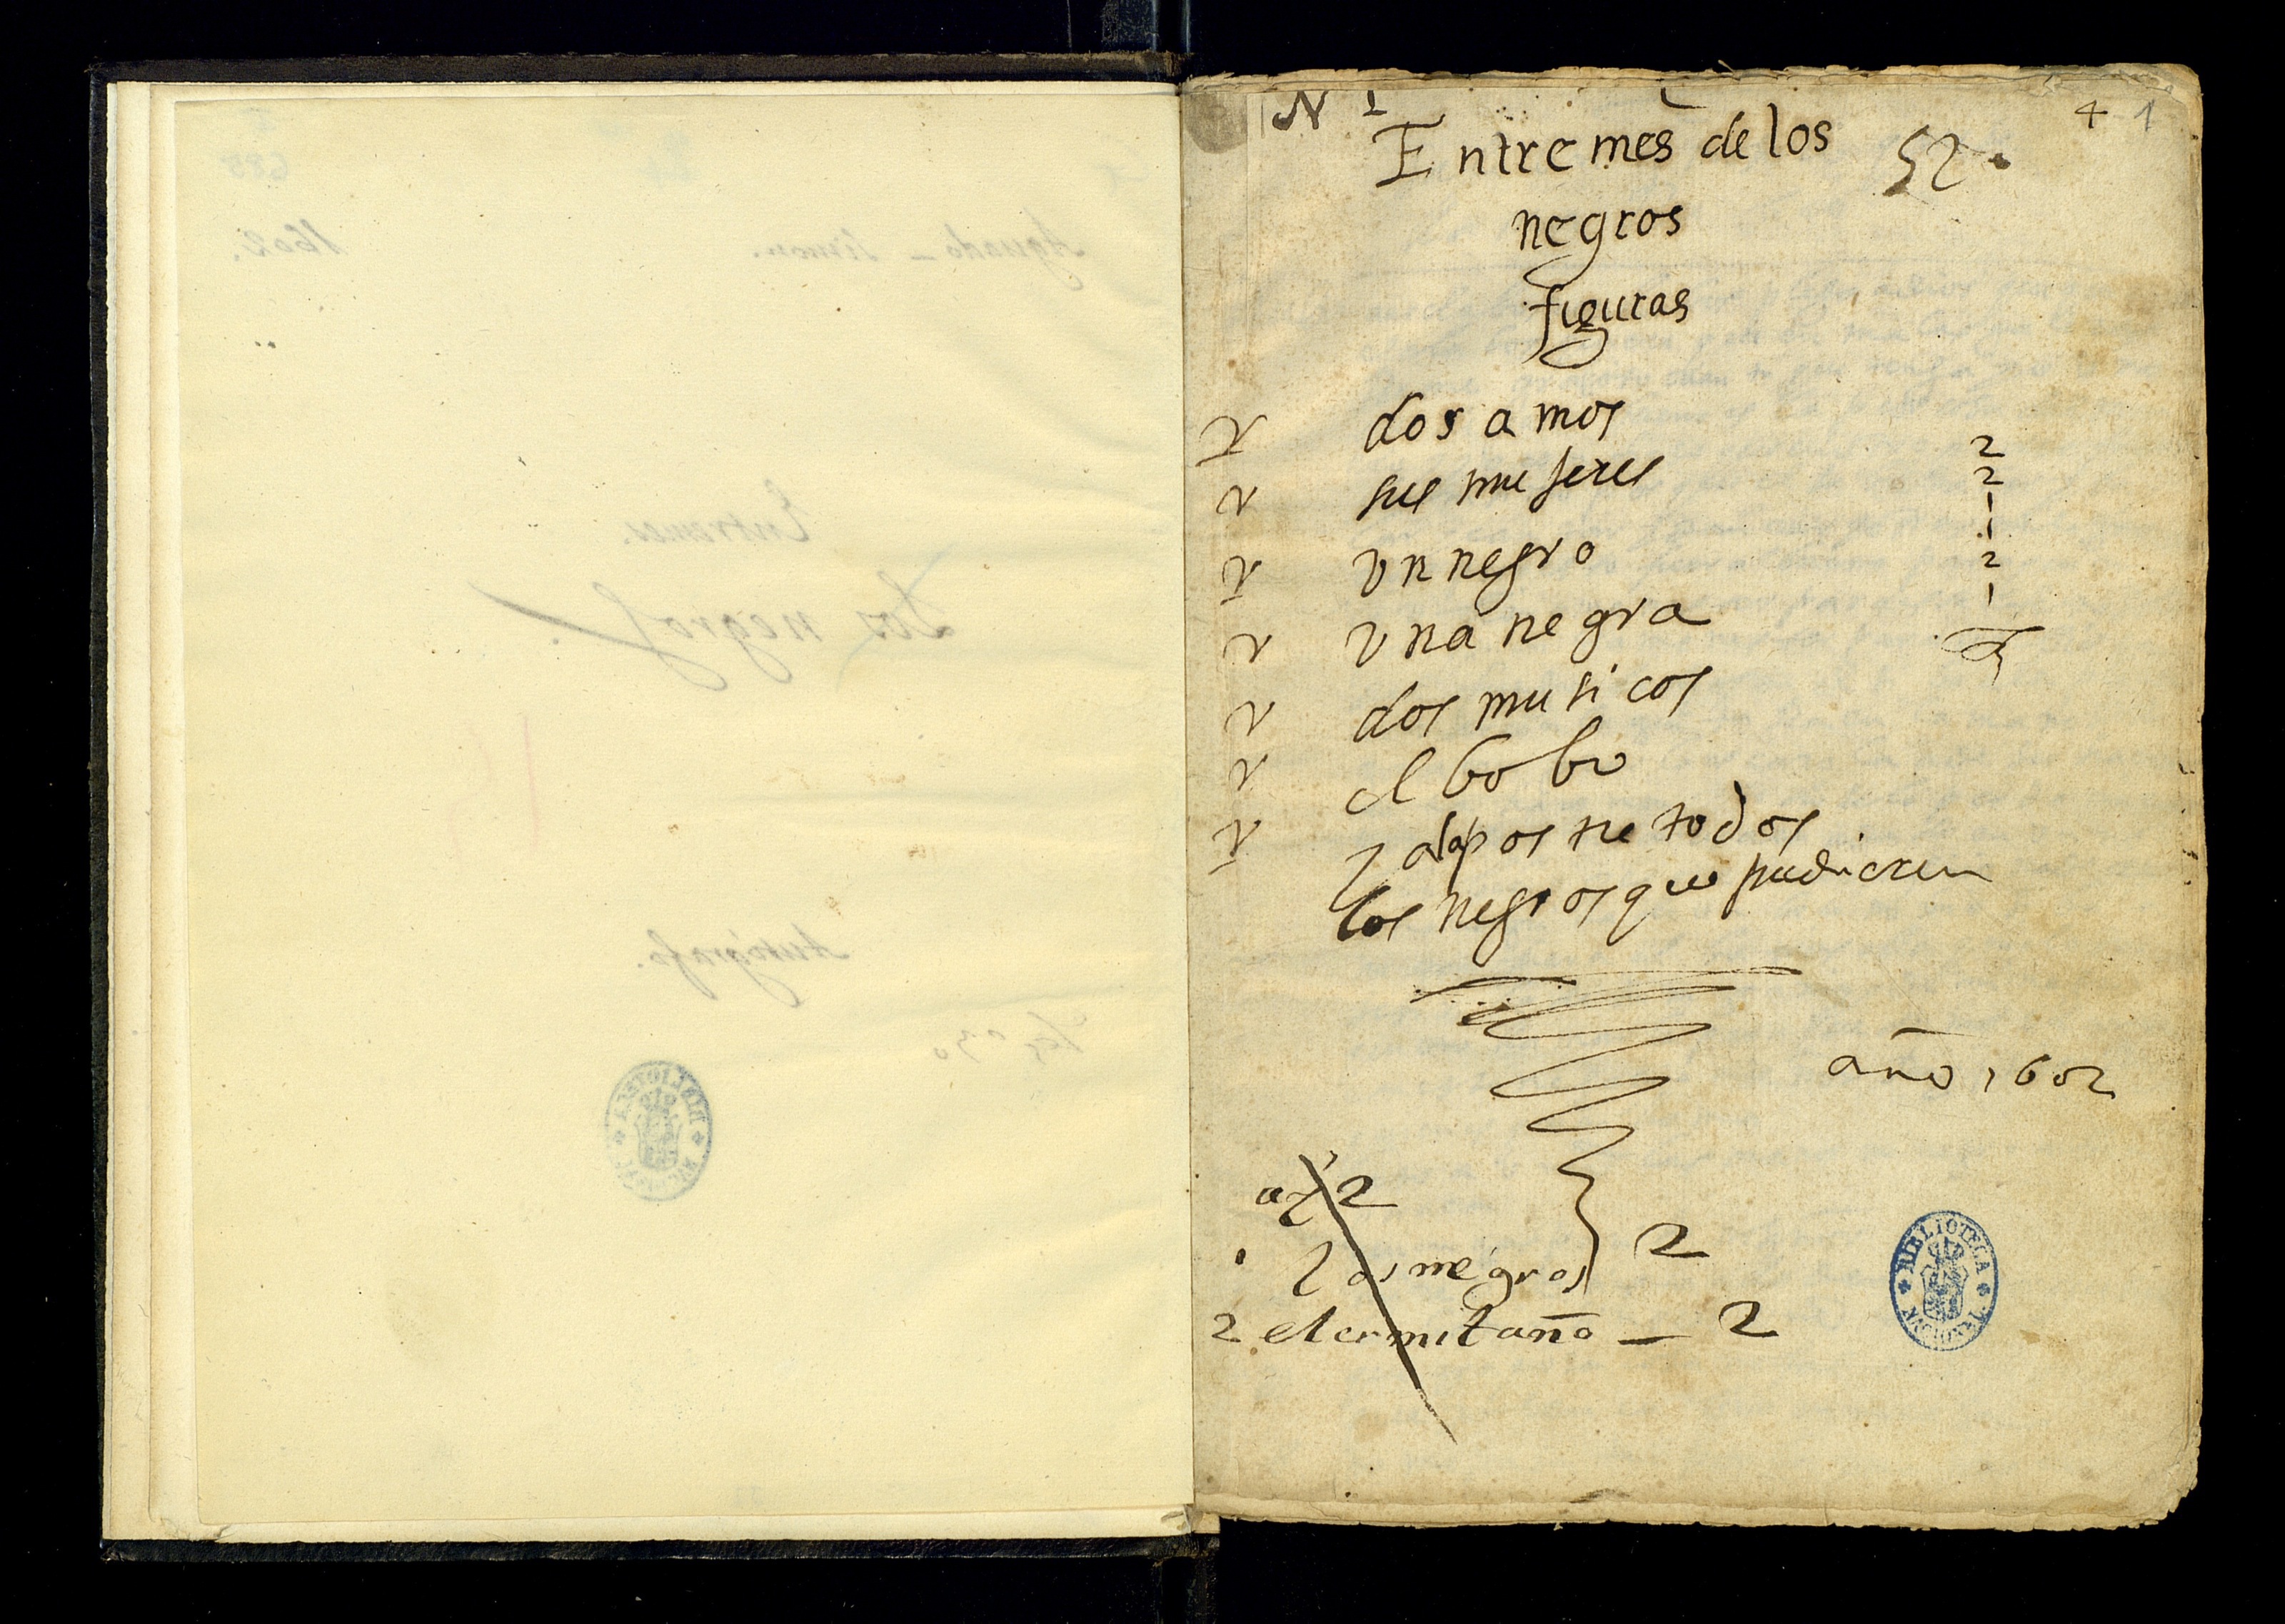 N 1
4 1
Entremes de los
52.
negros
figuras
dos amos
sus mujeres
un negro
una negra
dos musicos
el bobo
y alapostre todos
los negros que pudieren
2
2
1
1
2
1
año 1602
2
los negros 2
2 el ermitaño — 2
BIBLIOTECA NACIONAL
Aguado – Simon.
1602.
Entremes.
Los negros.
Autógrafo.
BIBLIOTECA NACIONAL